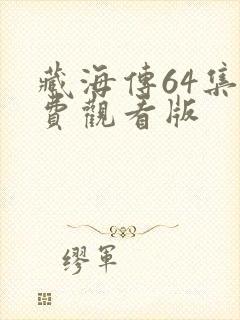 藏海傳64集
費觀看版
繆軍